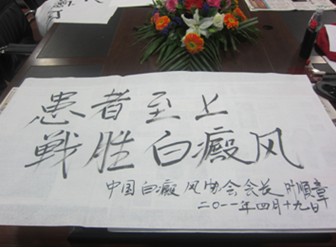 患者至上
戦胜白癜风
中国白癜风协会会长 叶顺章
二〇一一年四月十九日